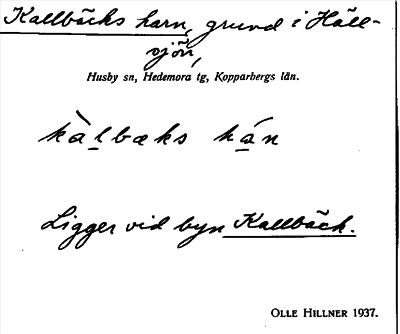 Kallbäcks harn, grund i Häll-
sjön,
Husby sn, Hedemora tg, Kopparbergs län.
kàlbæks hán
Ligger vid byn Kallbäck.
OLLE HILLNER 1937.